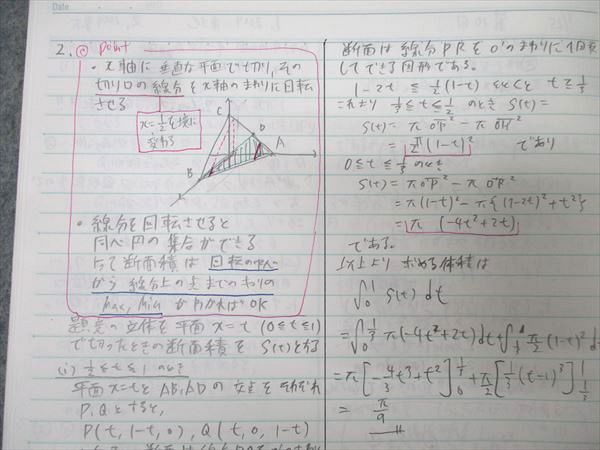 2. ◎ point
・x軸に垂直な平面で切り、その
切り口の線分をx軸のまわりに回転
させる
x=1/2を境に
変わる
C
D
A
B
・線分を回転させると
同心円の集合ができる
よって断面積は回転の中心
から線分上の点までのキョリの
Max, Minがわかれば OK
題意の立体を平面 x=t (0≦t≦1)
で切ったときの断面積を S(t)とする
(i) 1/2≦t≦1 のとき
平面x=tとAB, ADの交点をそれぞれ
P, Qとすると,
P(t, 1-t, 0), Q(t, 0, 1-t)
断面は線分PRをO'のまわりに1回転
してできる図形である。
1-2t ≦ 1/2(1-t) t≧1/3
1/3≦t≦1/2 のとき S(t)=
S(t)= π O'P² - π O'H²
= π/2 (1-t)² であり
0≦t≦1/3のとき
S(t)= π O'P² - π O'R²
= π(1-t)² - π{(1-2t)²+t²}
= π(-4t²+2t)
である。
以上より 求める体積は
∫₀¹ S(t) dt
= ∫₀^(1/3) π(-4t²+2t)dt + ∫_(1/3)^1 π/2 (1-t)² d
= π[-4/3 t³+t²]₀^(1/3) + π/2 [1/3 (t-1)³]_(1/3)^1
= π/9